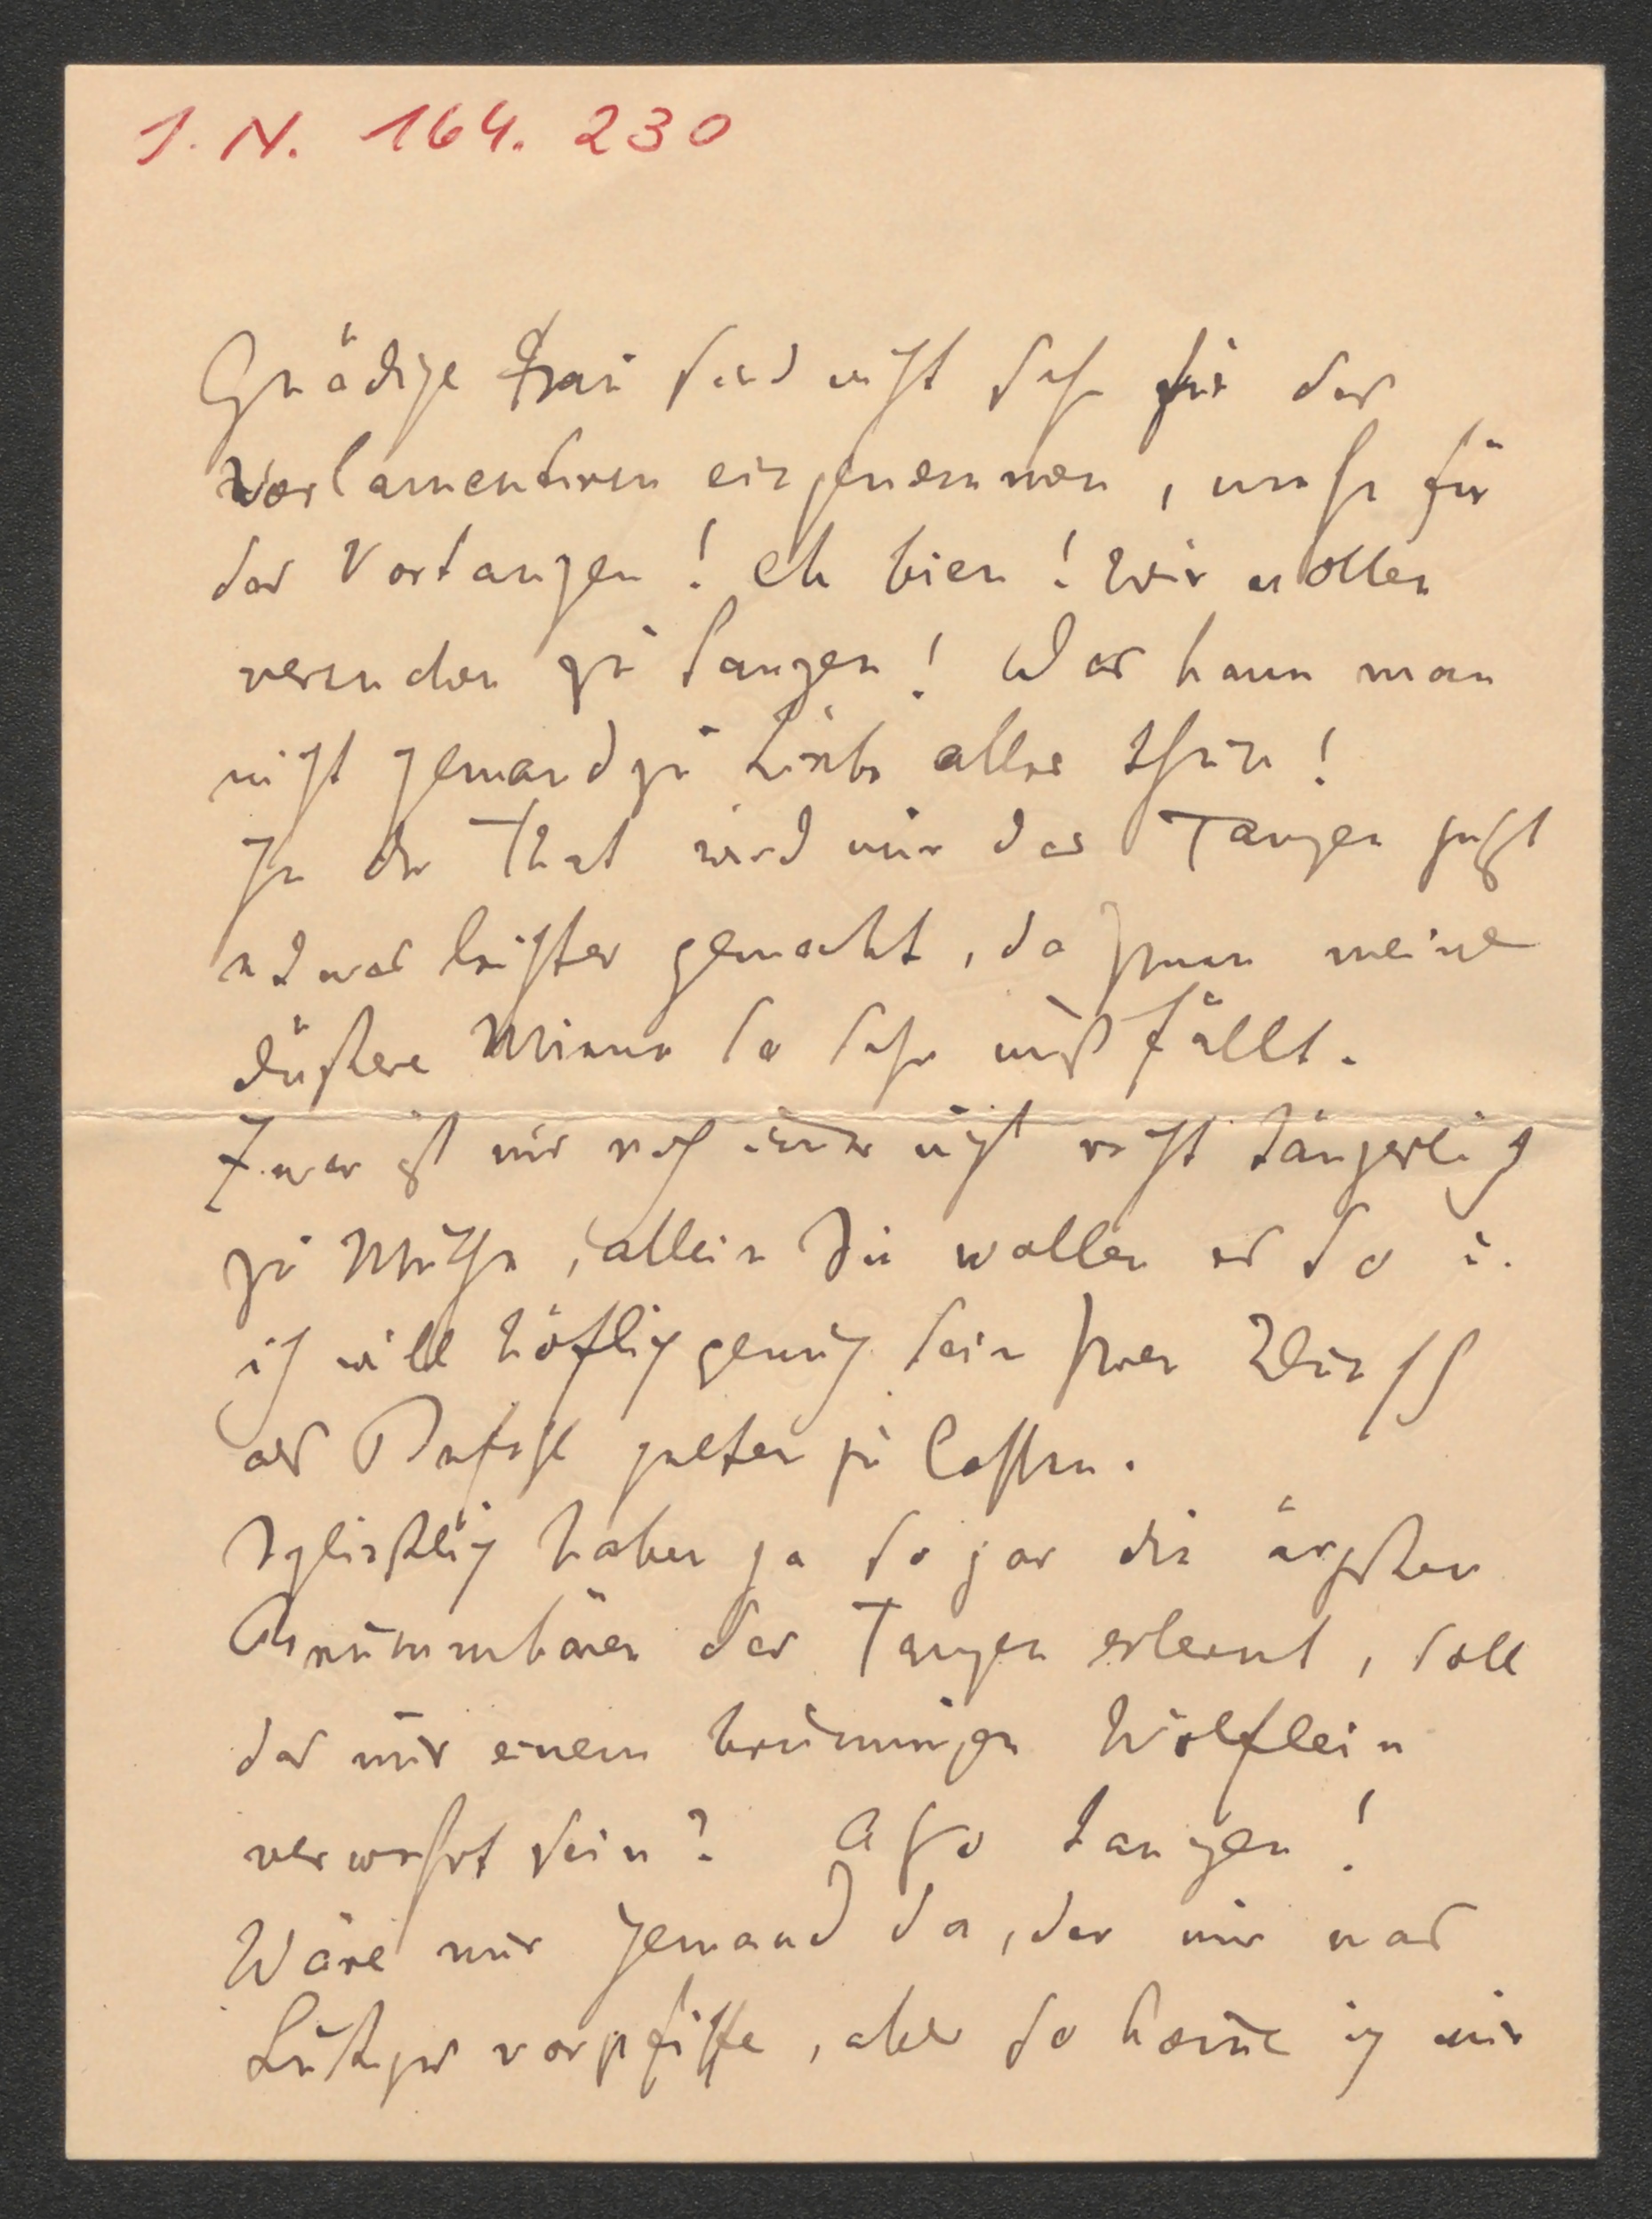 I. N. 164. 230
Gnädige Frau sind nicht sehr für das
Vorlamentiren eingenommen, mehr für
das Vortanzen! Eh bien! Wir wollen
versuchen zu tanzen! Was kann man
nicht Jemand zu Liebe alles thun!
In der That wird mir das Tanzen jetzt
etwas leichter gemacht, da Ihnen meine
düstere Miene so sehr mißfällt.
Zwar ist mir noch immer nicht recht tänzerlich
zu Muthe, allein Sie wollen es so u.
ich will höflich genug sein Ihren Wunsch
als Befehl gelten zu lassen.
Schließlich haben ja sogar die ärgsten
Brummbären das Tanzen erlernt, soll
das mir einem brummigen Wölflein
verwehrt sein? Also tanzen!
Wäre nur Jemand da, der mir was
Lustiges vorpfiffe, aber so komme ich mir